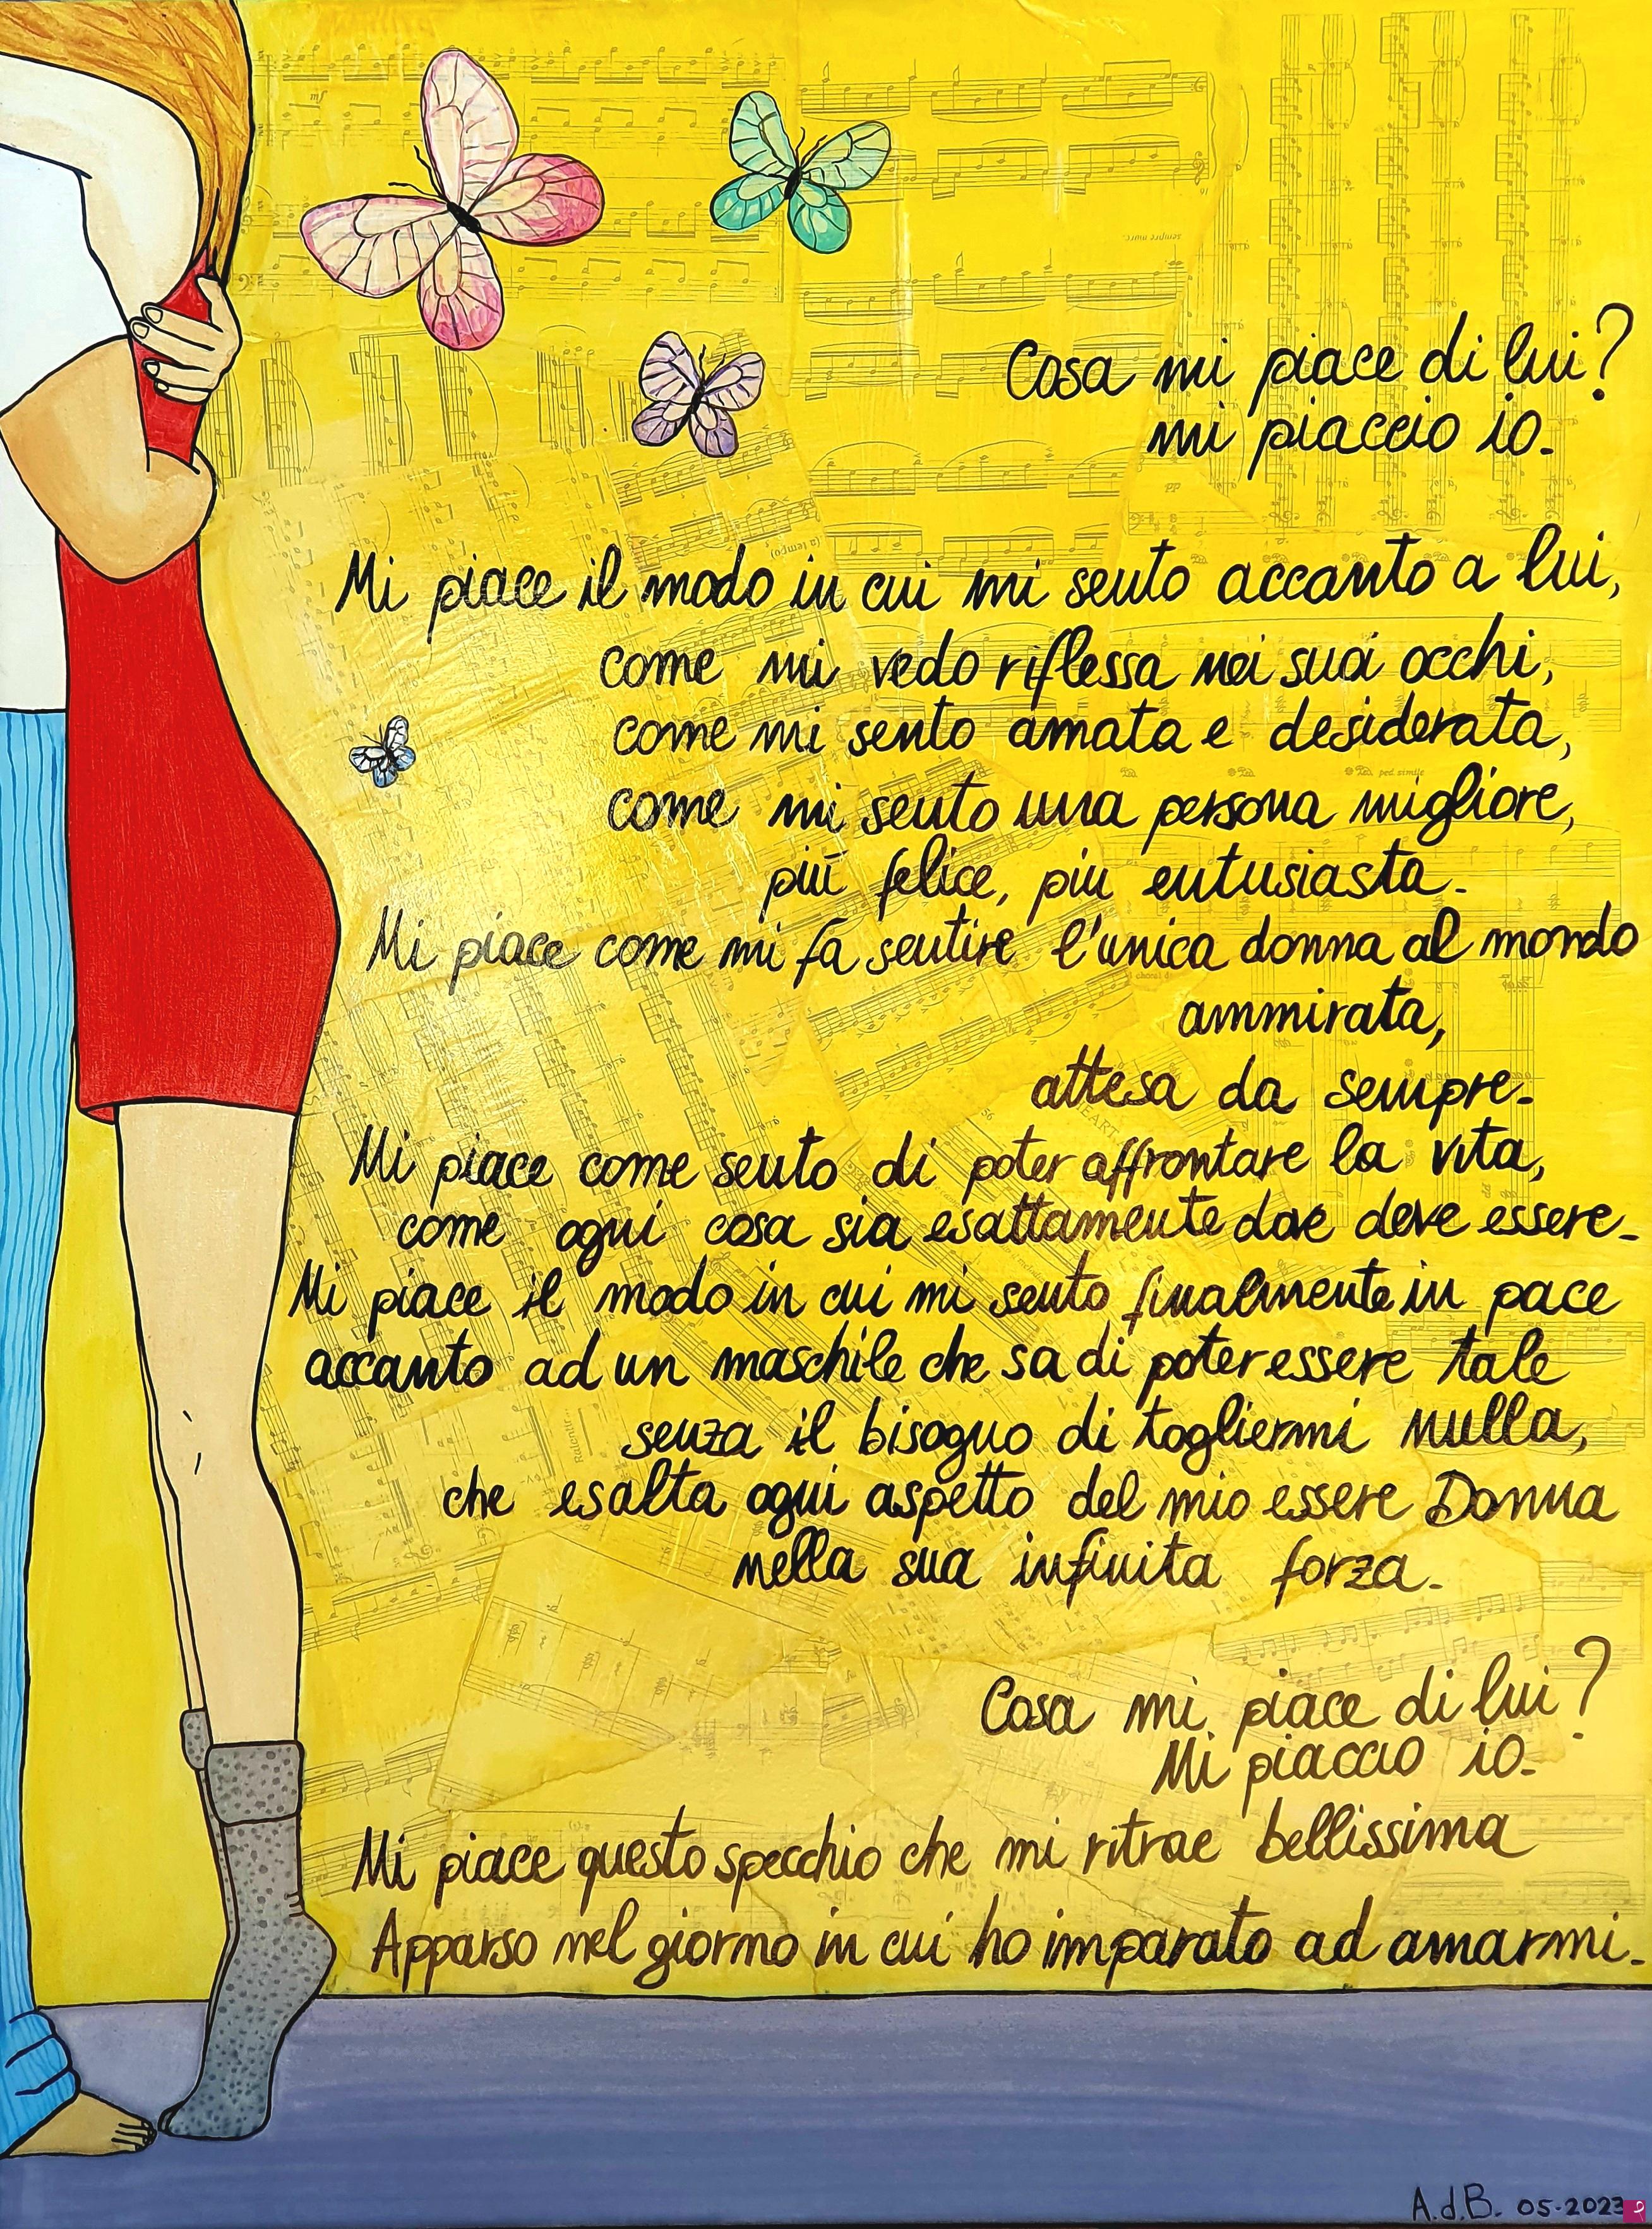 Cosa mi piace di lui?
mi piaccio io.
Mi piace il modo in cui mi sento accanto a lui,
come mi vedo riflessa nei suoi occhi,
come mi sento amata e desiderata,
come mi sento una persona migliore,
più felice, più entusiasta.
Mi piace come mi fa sentire l'unica donna al mondo
ammirata,
attesa da sempre.
Mi piace come sento di poter affrontare la vita,
come ogni cosa sia esattamente dove deve essere.
Mi piace il modo in cui mi sento finalmente in pace
accanto ad un maschile che sa di poter essere tale
senza il bisogno di togliermi nulla,
che esalta ogni aspetto del mio essere Donna
nella sua infinita forza.
Cosa mi piace di lui?
Mi piaccio io.
Mi piace questo specchio che mi ritrae bellissima
Apparso nel giorno in cui ho imparato ad amarmi.
A.d.B. 05-2023